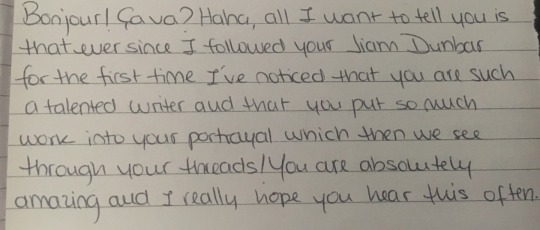 Bonjour! Ça va? Haha, all I want to tell you is
that ever since I followed your Liam Dunbar
for the first time I've noticed that you are such
a talented writer and that you put so much
work into your portrayal which then we see
through your threads! You are absolutely
amazing and I really hope you hear this often.